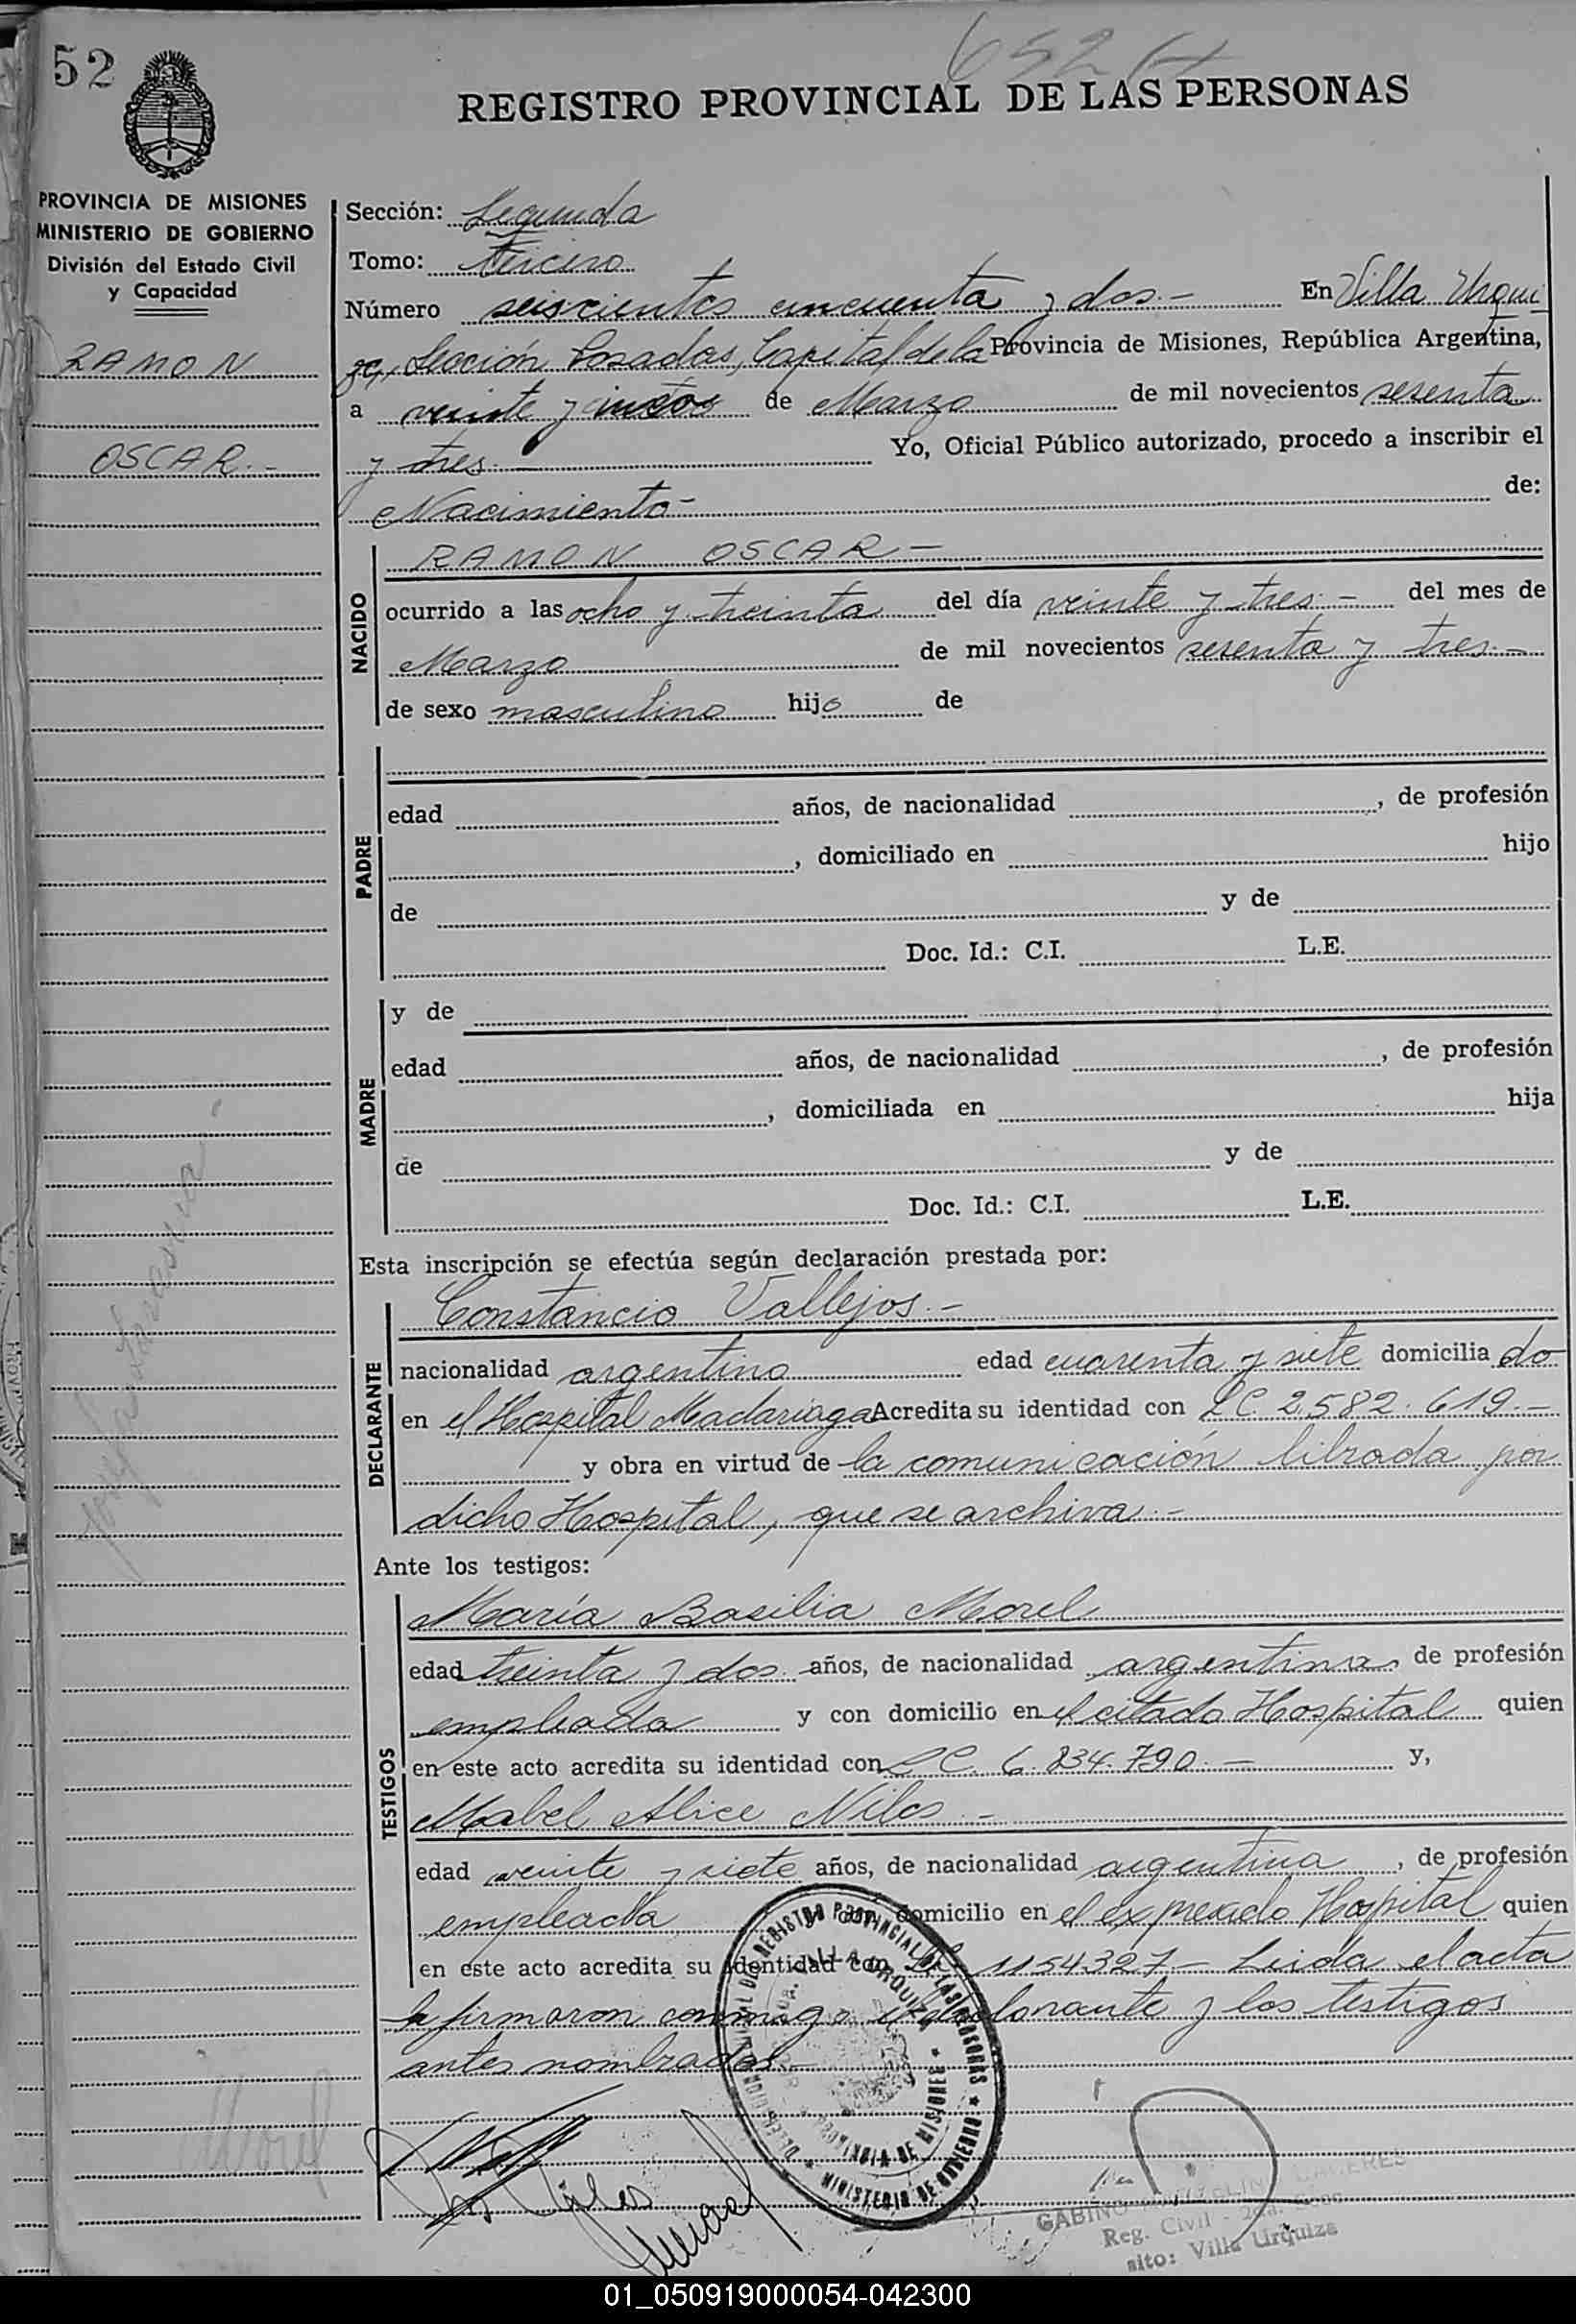 52
652
REGISTRO PROVINCIAL DE LAS PERSONAS
PROVINCIA DE MISIONES
MINISTERIO DE GOBIERNO
División del Estado Civil
y Capacidad
RAMON
OSCAR.-
Sección: Segunda
Tomo: tercero
Número seiscientos cincuenta y dos.- En Villa Urqui-
za, Sección Posadas, Capital de la Provincia de Misiones, República Argentina,
a veinte y de Marzo de mil novecientos sesenta
y tres.- Yo, Oficial Público autorizado, procedo a inscribir el
Nacimiento- de:
NACIDO
RAMON OSCAR-
ocurrido a las ocho y treinta del día veinte y tres.- del mes de
Marzo de mil novecientos sesenta y tres.-
de sexo masculino hijo de
PADRE
edad años, de nacionalidad , de profesión
, domiciliado en hijo
de y de
Doc. Id.: C.I. L.E.
MADRE
y de
edad años, de nacionalidad , de profesión
, domiciliada en hija
de y de
Doc. Id.: C.I. L.E.
Esta inscripción se efectúa según declaración prestada por:
DECLARANTE
Constancio Vallejos.-
nacionalidad argentino edad cuarenta y siete domiciliado
en el Hospital Madariaga Acredita su identidad con 2.582.619.-
y obra en virtud de la comunicación librada por
dicho Hospital, que se archiva.-
Ante los testigos:
TESTIGOS
María Basilia Morel
edad treinta y dos años, de nacionalidad argentina, de profesión
empleada y con domicilio en el citado Hospital quien
en este acto acredita su identidad con LC. 6.834.790.- y,
Mabel Alice Niles.-
edad veinte y siete años, de nacionalidad argentina, de profesión
empleada y con domicilio en el expresado Hospital quien
en este acto acredita su identidad con 1154327.- Leida el acta
la firmaron conmigo el declarante y los testigos
antes nombrados.-
DEL REGISTRO PROVINCIAL DE LAS PERSONAS * MINISTERIO DE GOBIERNO *
VILLA URQUIZA
PROVINCIA DE MISIONES
Morel
GABINO
Reg. Civil
Villa Urquiza
01_050919000054-042300